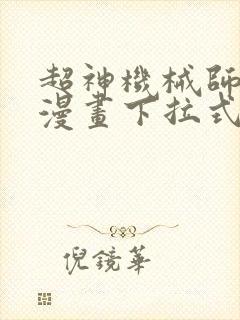 超神機械師
漫畫下拉式
倪鏡華